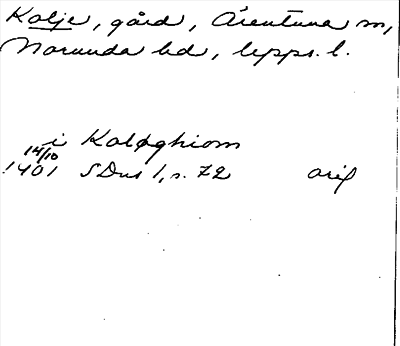 Kolje, gård, Ärentuna sn,
Norunda hd, Upps. l.
i Koløghiom
14/10
1401 SDns 1, s. 72 orig